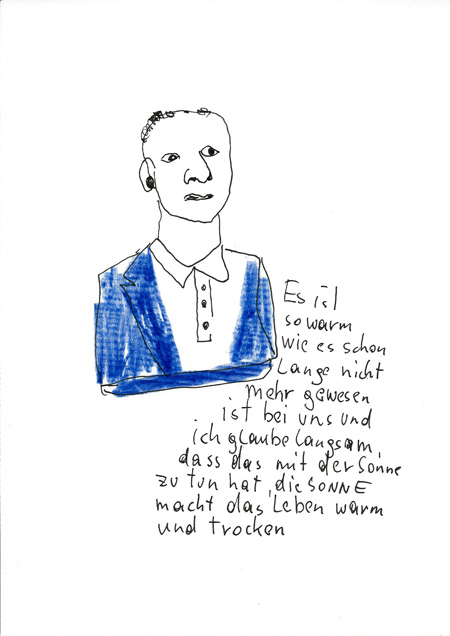 Es ist
so warm
wie es schon
Lange nicht
mehr gewesen
ist bei uns und
ich glaube langsam,
dass das mit der Sonne
zu tun hat, die SONNE
macht das Leben warm
und trocken